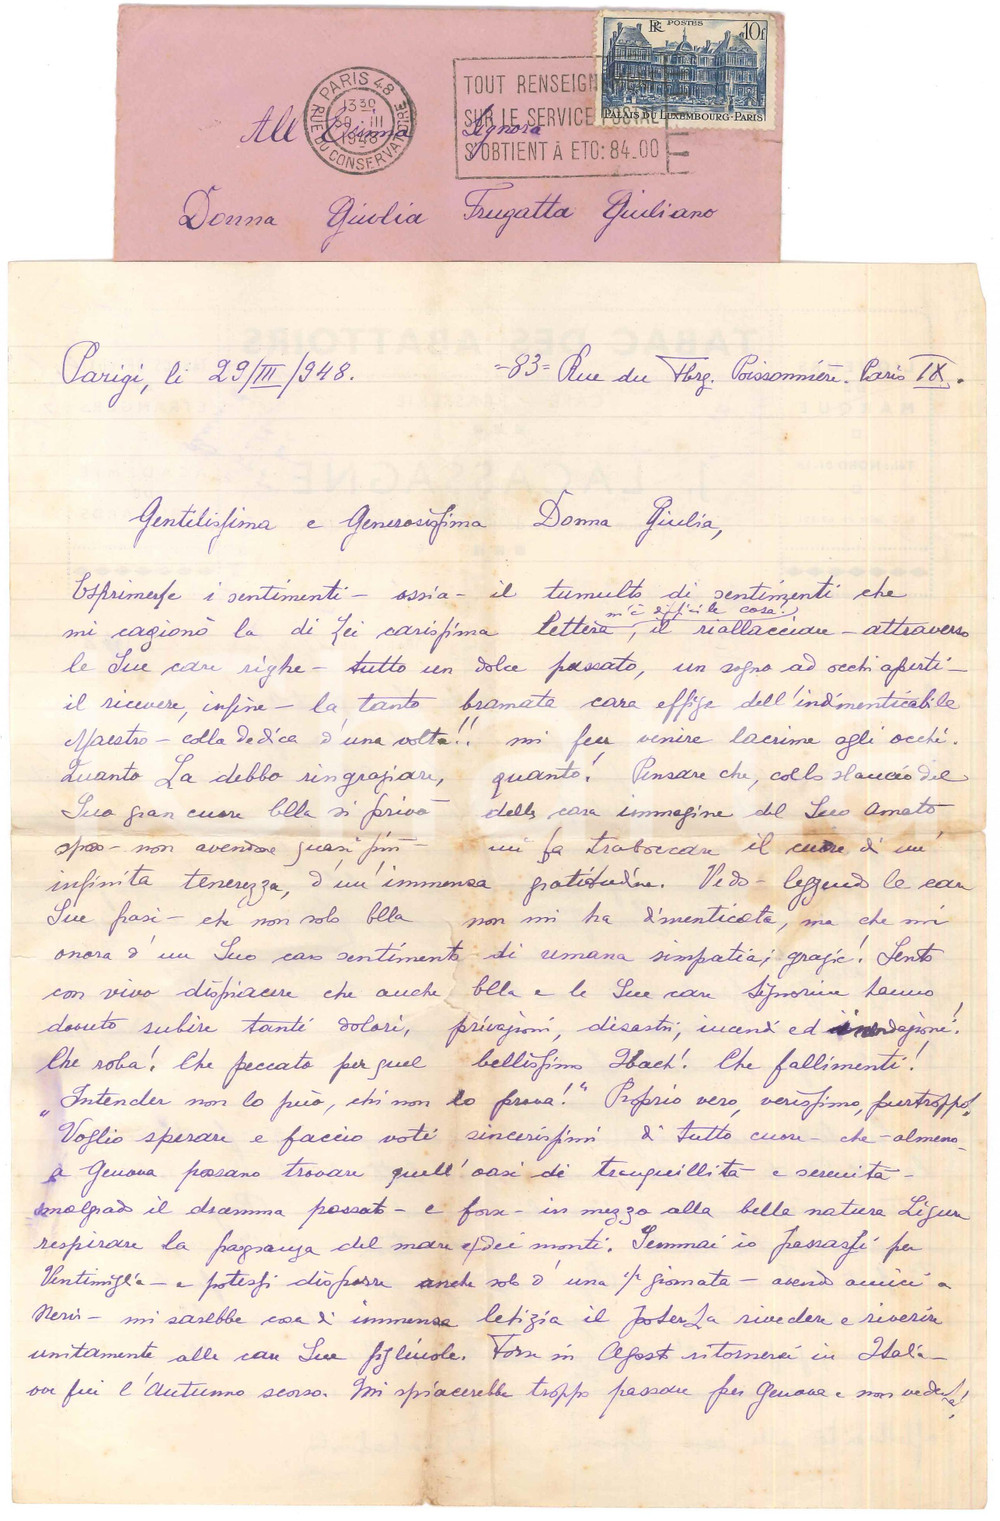 PARIS 48
RUE DU CONSERVATOIRE
13 30
1948
TOUT RENSEIGN
SUR LE SERVICE POSTAL
S'OBTIENT À ETO: 84_00
POSTES
10f
PALAIS DU LUXEMBOURG-PARIS
All'
Donna Giulia Frugatta Giuliano
Parigi, li 29/III/948.
=83= Rue du Fbrg. Poissonnière. Paris IX.
Gentilissima e Generosissima Donna Giulia,
Esprimerle i sentimenti - ossia - il tumulto di sentimenti che
m'è difficile cosa!
mi cagionò la di Lei carissima lettera, il riallacciare - attraverso
le Sue care righe - tutto un dolce passato, un sogno ad occhi aperti -
il ricevere, infine - la tanto bramata cara effige dell'indimenticabile
Maestro - colla dedica d'una volta!! mi fece venire lacrime agli occhi.
Quanto La debbo ringraziare, quanto! Pensare che, collo slancio del
Suo gran cuore Ella si privò della cara immagine del Suo amato
sposo - non avendone quasi più - mi fa traboccare il cuore di un'
infinita tenerezza, d'un'immensa gratitudine. Vedo - leggendo le care
Sue frasi - che non solo Ella non mi ha dimenticata, ma che mi
onora d'un Suo caro sentimento di umana simpatia; grazie! Sento
con vivo dispiacere che anche Ella e le Sue care Signorine hanno
dovuto subire tanti dolori, privazioni, disastri, incendi ed inondazioni!
Che roba! Che peccato per quel bellissimo Ibach! Che fallimenti!
"Intender non lo può, chi non lo prova!" Proprio vero, verissimo, purtroppo!
Voglio sperare e faccio voti sincerissimi di tutto cuore - che - almeno -
a Genova possano trovare quell'oasi di tranquillità e serenità -
malgrado il dramma passato - e forse - in mezzo alla bella natura Ligure
respirare la fragranza del mare e dei monti. Semmai io passassi per
Ventimiglia - e potessi disporre anche solo d'una ½ giornata - avendo amici a
Nervi - mi sarebbe cosa di immensa letizia il poterLa rivedere e riverire
unitamente alle care Sue figliuole. Forse in Agosto ritornerei in Italia -
ove fui l'Autunno scorso. Mi spiacerebbe troppo passare per Genova e non vederLa!